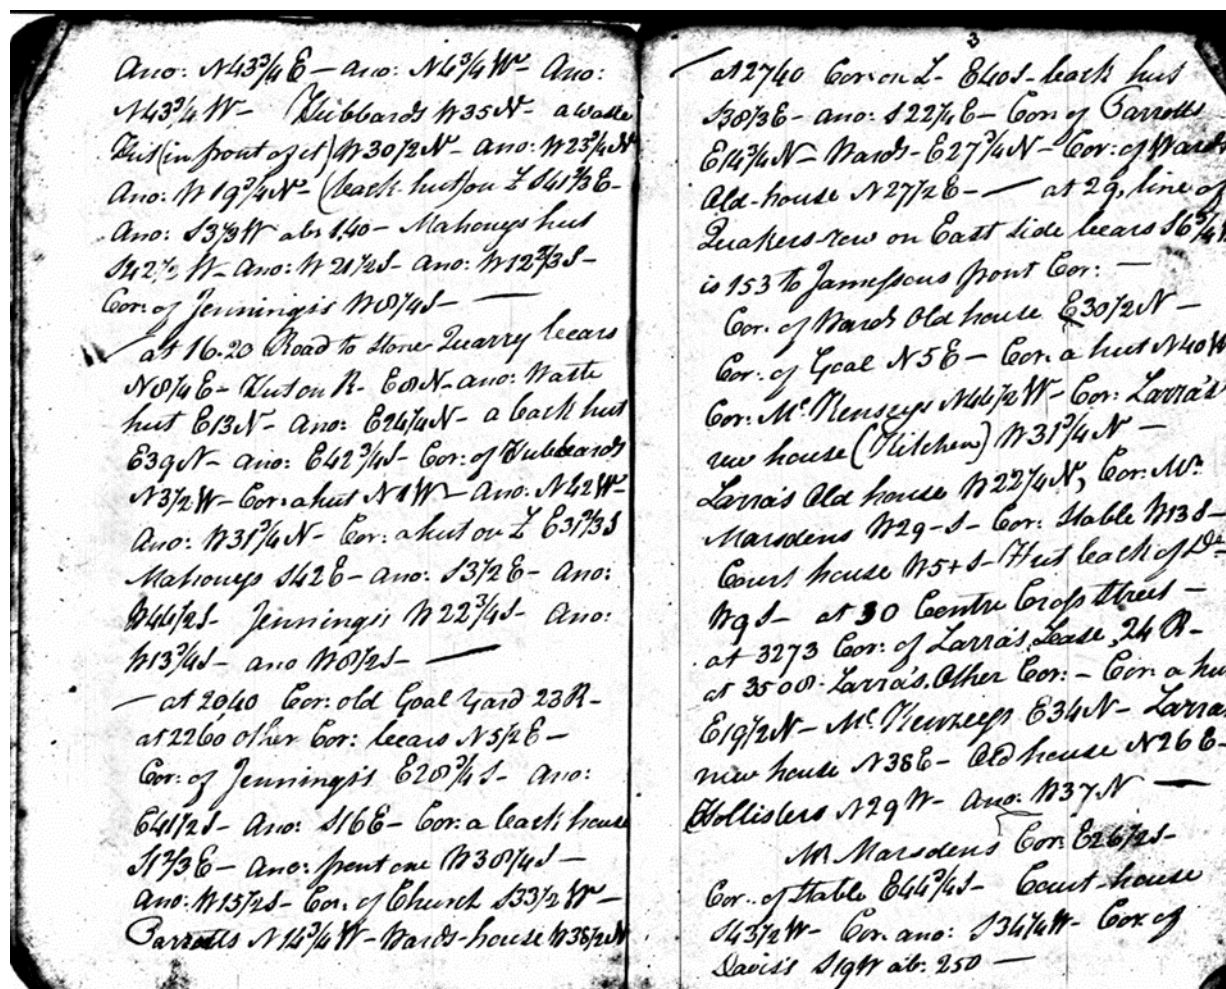 Ano: N43¾E – ano: N4¾W – Ano:
N43¾W – Hubbards W35N – a waste
Hut (in front of it) W30½N – Ano: W23¾N
Ano: W19¾N – (back hut) on L S41⅔E –
Ano: S3⅓W abt 1.40 – Mahoneys hut
S42½W – Ano: W21½S – Ano: W12⅔S –
Cor: of Jennings's W8¼S –
at 16.20 Road to Stone Quarry bears
N8¼E – Hut on R – E8N – ano: Waste
hut E13N – Ano: E24¼N – a back hut
E39N – Ano: E42¾S – Cor: of Hubbards
N3½W – Cor: a hut N1W – Ano: N42W –
Ano: W31¾N – Cor: a hut on L E31⅔S
Mahoneys S42E – ano: S3½E – Ano:
W44½S – Jennings's W22¾S – Ano:
W13¾S – ano W8½S –
– at 2040 Cor: old Goal Yard 23R –
at 2260 other Cor: bears N5½E –
Cor: of Jennings's E28¾S – Ano:
E41½S – Ano: S16E – Cor: a back house
S1⅔E – Ano: front one W38¼S –
Ano: W15½S – Cor: of Church S33½W –
Parrotts N14¾W – Wards-house W38½N
3
at 2740 Cor: on L – E40S – back hut
S38⅓E – ano: S22¼E – Cor: of Parrotts
E14¾N – Wards – E27¾N – Cor: of Wards
Old-house N27½E – – at 29, line of
Quakers-row on East side bears S6¾W
is 153 to Jamessons front Cor: –
Cor: of Wards Old house E30½N –
Cor: of Goal N5E – Cor: a hut N40W
Cor: Mc. Kenseys N44½W – Cor: Larra's
new house (Kitchen) W31¾N –
Larra's Old house W22¼N, Cor: Mr.
Marsdens W29-S – Cor: Stable W13S –
Court house W5+S – Hut back of Do
W9S – at 30 Centre Cross Street –
at 3273 Cor: of Larra's Lease, 24R –
at 3508. Larra's Other Cor: – Cor: a hu
E19½N – Mc. Kenzeys E34N – Larra
new house N38E – Old house N26E –
Hollisters N29W – Ano: W37N –
Mr Marsdens Cor: E26½S –
Cor: of Stable E44¾S – Court-house
S43½W – Cor: ano: S34¼W – Cor: of
Davis's S19W ab: 250 –